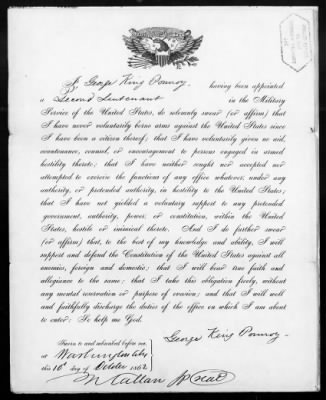 I, George King Pomroy, having been appointed
a Second Lieutenant in the Military
Service of the United States, do solemnly swear (or affirm) that
I have never voluntarily borne arms against the United States since
I have been a citizen thereof; that I have voluntarily given no aid,
countenance, counsel, or encouragement to persons engaged in armed
hostility thereto; that I have neither sought nor accepted nor
attempted to exercise the functions of any office whatever, under any
authority, or pretended authority, in hostility to the United States;
that I have not yielded a voluntary support to any pretended
government, authority, power, or constitution, within the United
States, hostile or inimical thereto. And I do further swear
(or affirm) that, to the best of my knowledge and ability, I will
support and defend the Constitution of the United States against all
enemies, foreign and domestic; that I will bear true faith and
allegiance to the same; that I take this obligation freely, without
any mental reservation or purpose of evasion; and that I will well
and faithfully discharge the duties of the office on which I am about
to enter: So help me God.
George King Pomroy
Sworn to and subscribed before me
at Washington City
this 10th day of October 1862